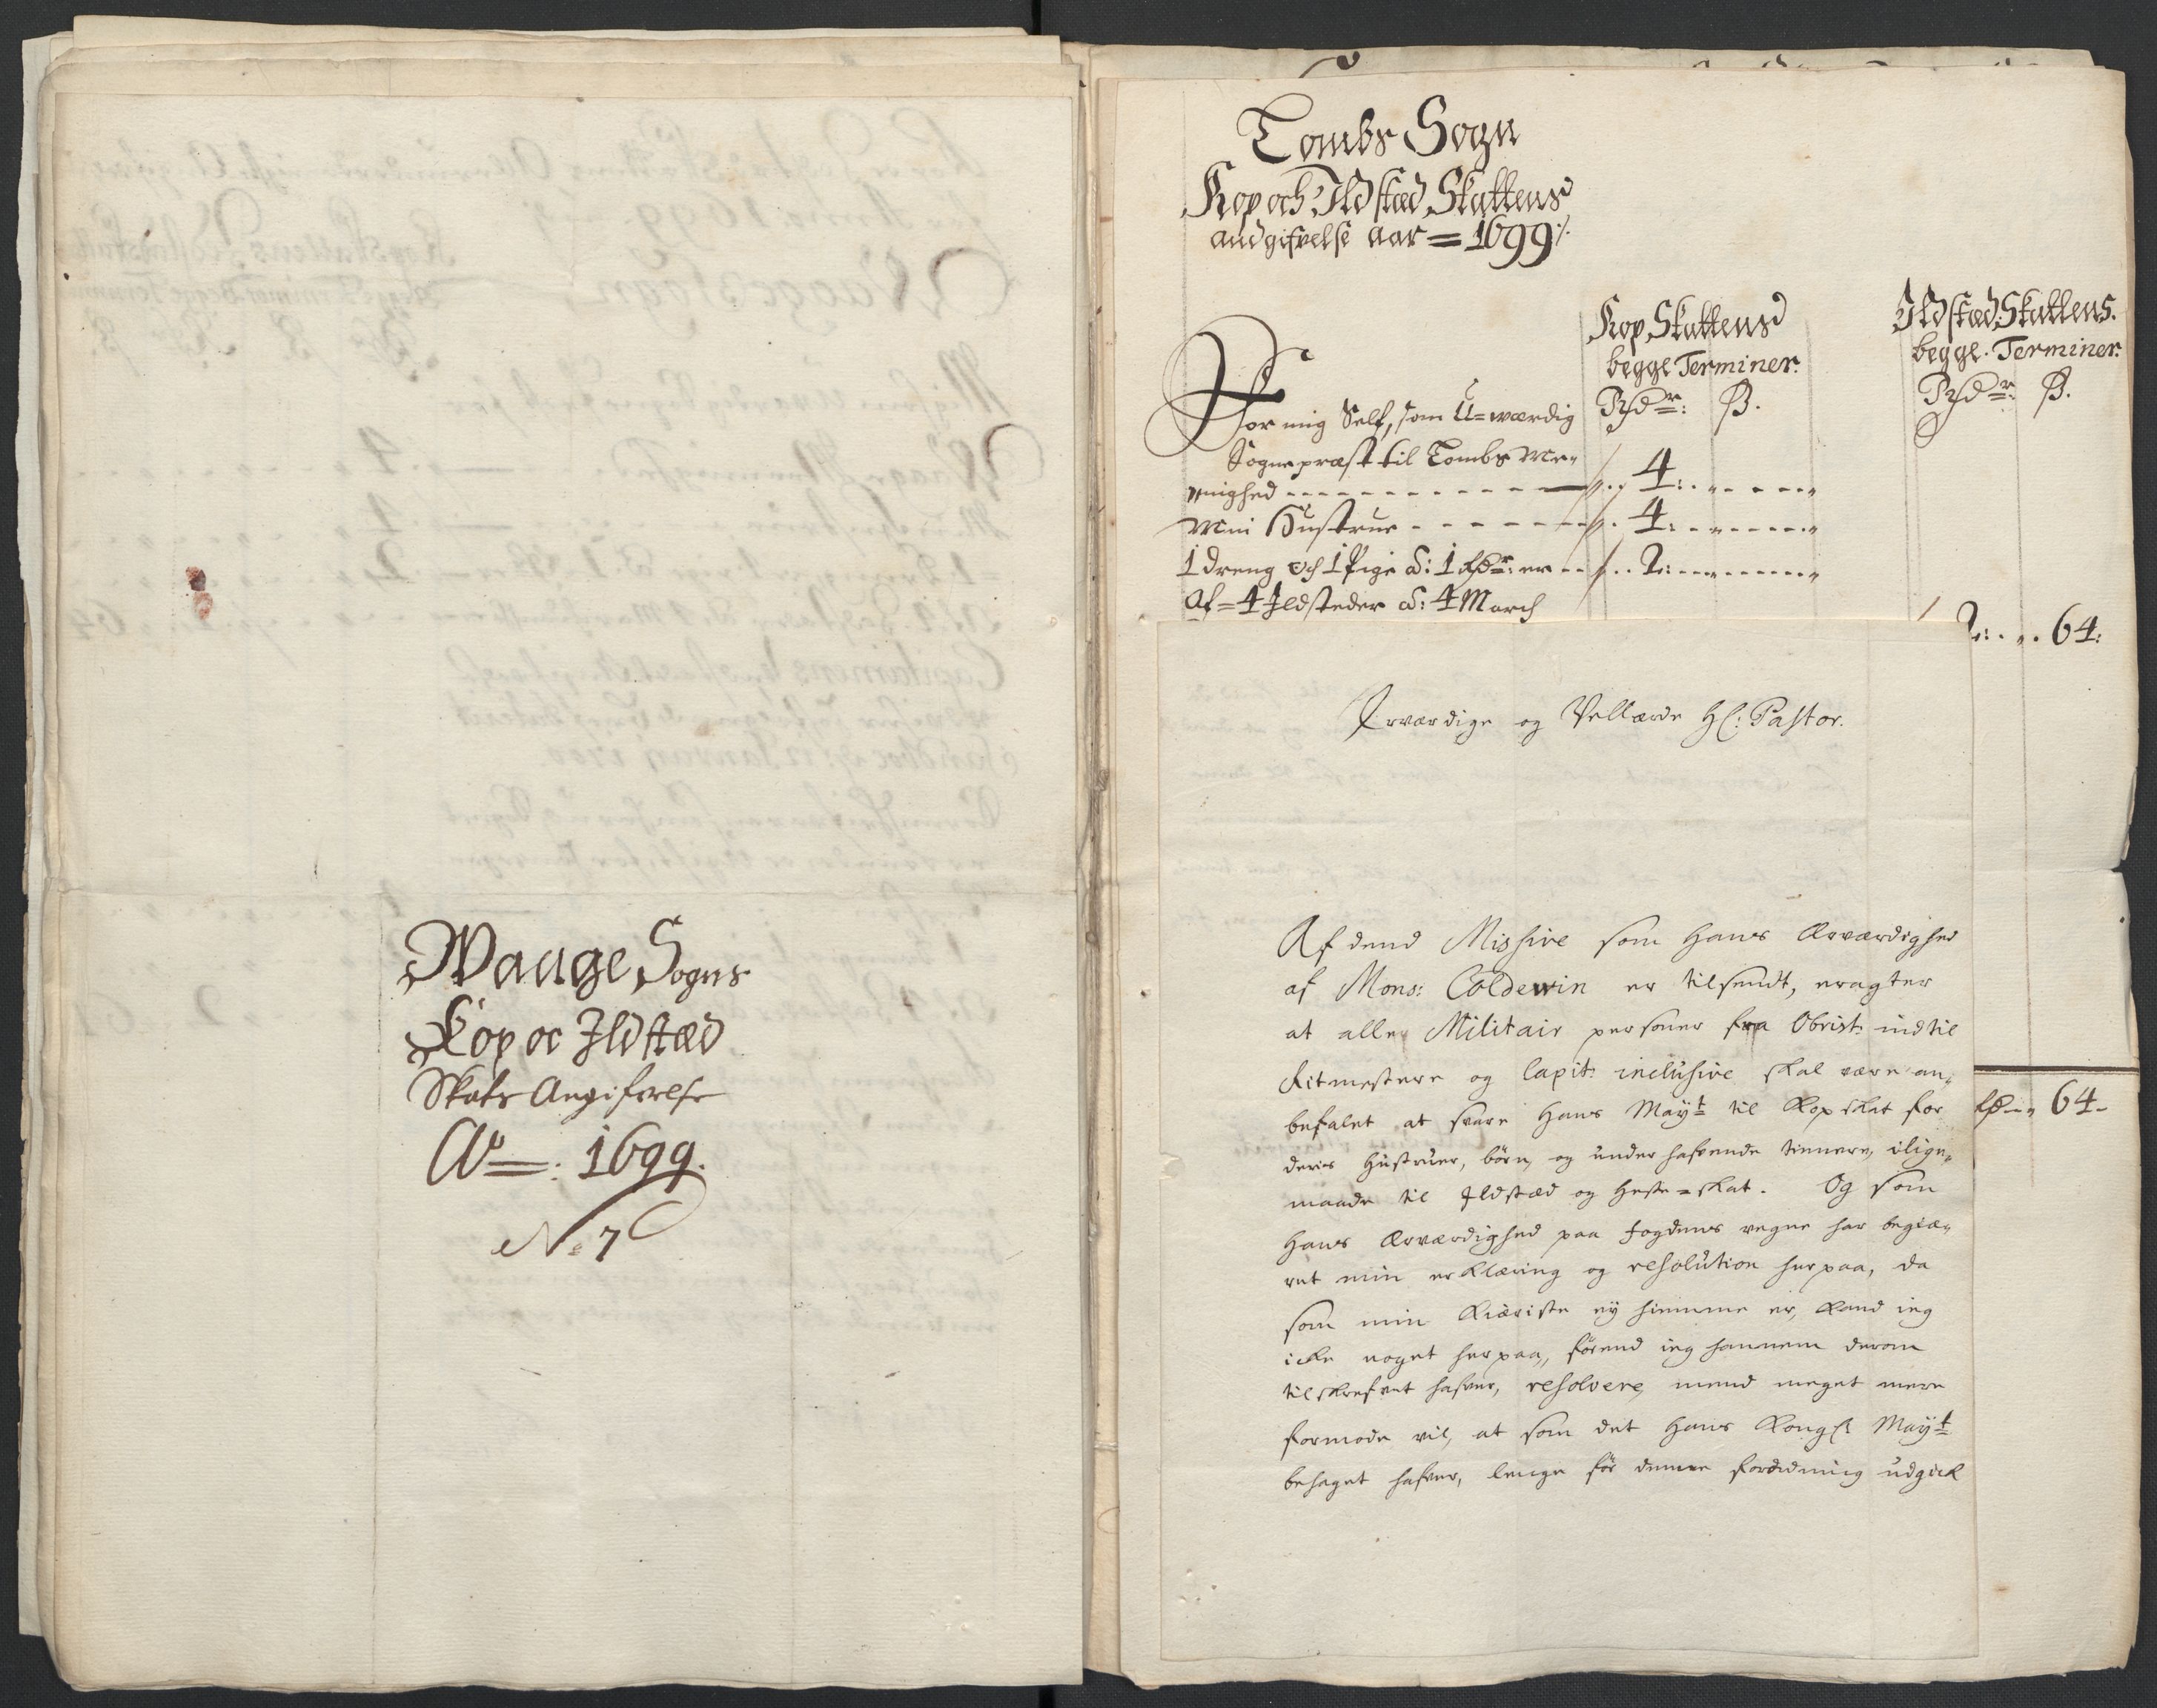 Waage Sogns
Kop oc Ildstæd
Skats Angifvelse
Ao: 1699.
No 7
Tombs Sogn
Kop och Ildstæd Skattens
andgifvelse aar = 1699 ./.
Kop Skattens
begge Terminer.
Rdr: β.
Ildstæd Skattens.
begge Terminer.
Rdr: β.
For mig Self, som U=værdig
Sognepræst til Tombs Me-
nighed 4:
Min Hustrue 4:
1 dreng och 1 Pige â: 1 Rdr: er 2:
Af = 4 Ildsteder â: 4 March
2: 64:
Erværdige og Vellærde Hl: Pastor.
Af dend Missive som Hans Ærværdighed
af Mons: Coldewin er tilsendt, eragter
at alle Militair personer fra Obrist: indtil
Ritmestere og Capit: inclusive skal være an-
befalet at svare Hans Mayt til Kopskat for
deris Hustruer, börn, og underhafvende tienere, ilige-
maade til Ildstæd og Heste=skat. Og som
Hans Ærværdighed paa Fogdens vegne har begiæ-
ret min erklæring og resolution herpaa, da
som min Kiæriste eÿ hiemme er, kand ieg
icke noget herpaa, förend ieg hannem derom
tilskrefvet hafver, resolvere, mend meget mere
formode vil, at som det Hans Kongl Mayt
behaget hafver, lenge för denne forordning udgick
64-